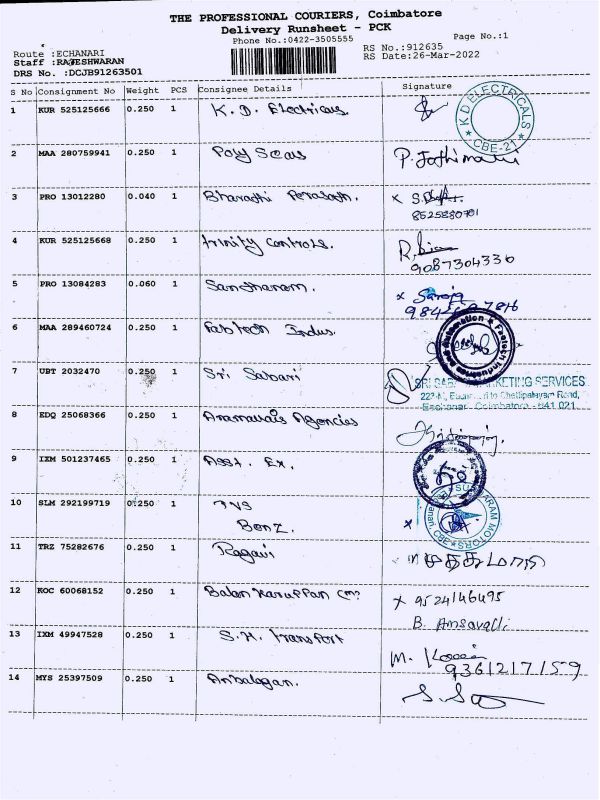 THE PROFESSIONAL COURIERS, Coimbatore
Delivery Runsheet - PCK
Phone No.:0422-3505555
Page No.:1
Route :ECHANARI
RS No.:912635
Staff :RAJESHWARAN
RS Date:26-Mar-2022
DRS No. :DCJB91263501
S No Consignment No Weight PCS Consignee Details Signature
1 KUR 525125666 0.250 1 K.D. Electricals
K D ELECTRICALS CBE-21
2 MAA 280759941 0.250 1 Poly Seals P. Jothimani
3 PRO 13012280 0.040 1 Bharathi
8525880701
4 KUR 525125668 0.250 1 trinity controls.
9087304336
5 PRO 13084283 0.060 1 Santhanam. x Saroja
6 MAA 289460724 0.250 1 Fabtech Indus.
7 UBT 2032470 0.250 1 Sri Sabari
SRI SABARI MARKETING SERVICES
Chettipalayam Road,
Eachanari Coimbatore - 641 021
8 EDQ 25068366 0.250 1 Agencies
9 IXM 501237465 0.250 1 Asst. Ex.
10 SLM 292199719 0.250 1 TVS
Benz. x
SUNDARAM MOTORS CBE
11 TRZ 75282676 0.250 1 Ragavi
12 KOC 60068152 0.250 1 Balan Karuppan x 9524146495
B. Amsavalli
13 IXM 49947528 0.250 1 S.H. transport
M.
9361217159
14 MYS 25397509 0.250 1 Anbalagan.